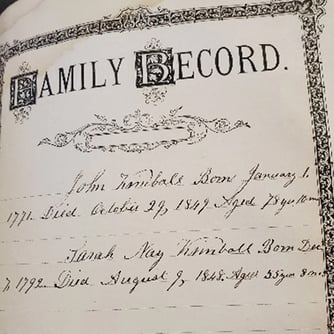 FAMILY RECORD.
John Kimball Born January 1.
1771. Died October 29, 1849. Aged 78 yrs 10 mo
Sarah Nay Kimball Born Dec
1792. Died August 9, 1848. Aged 55 yr 8 mo